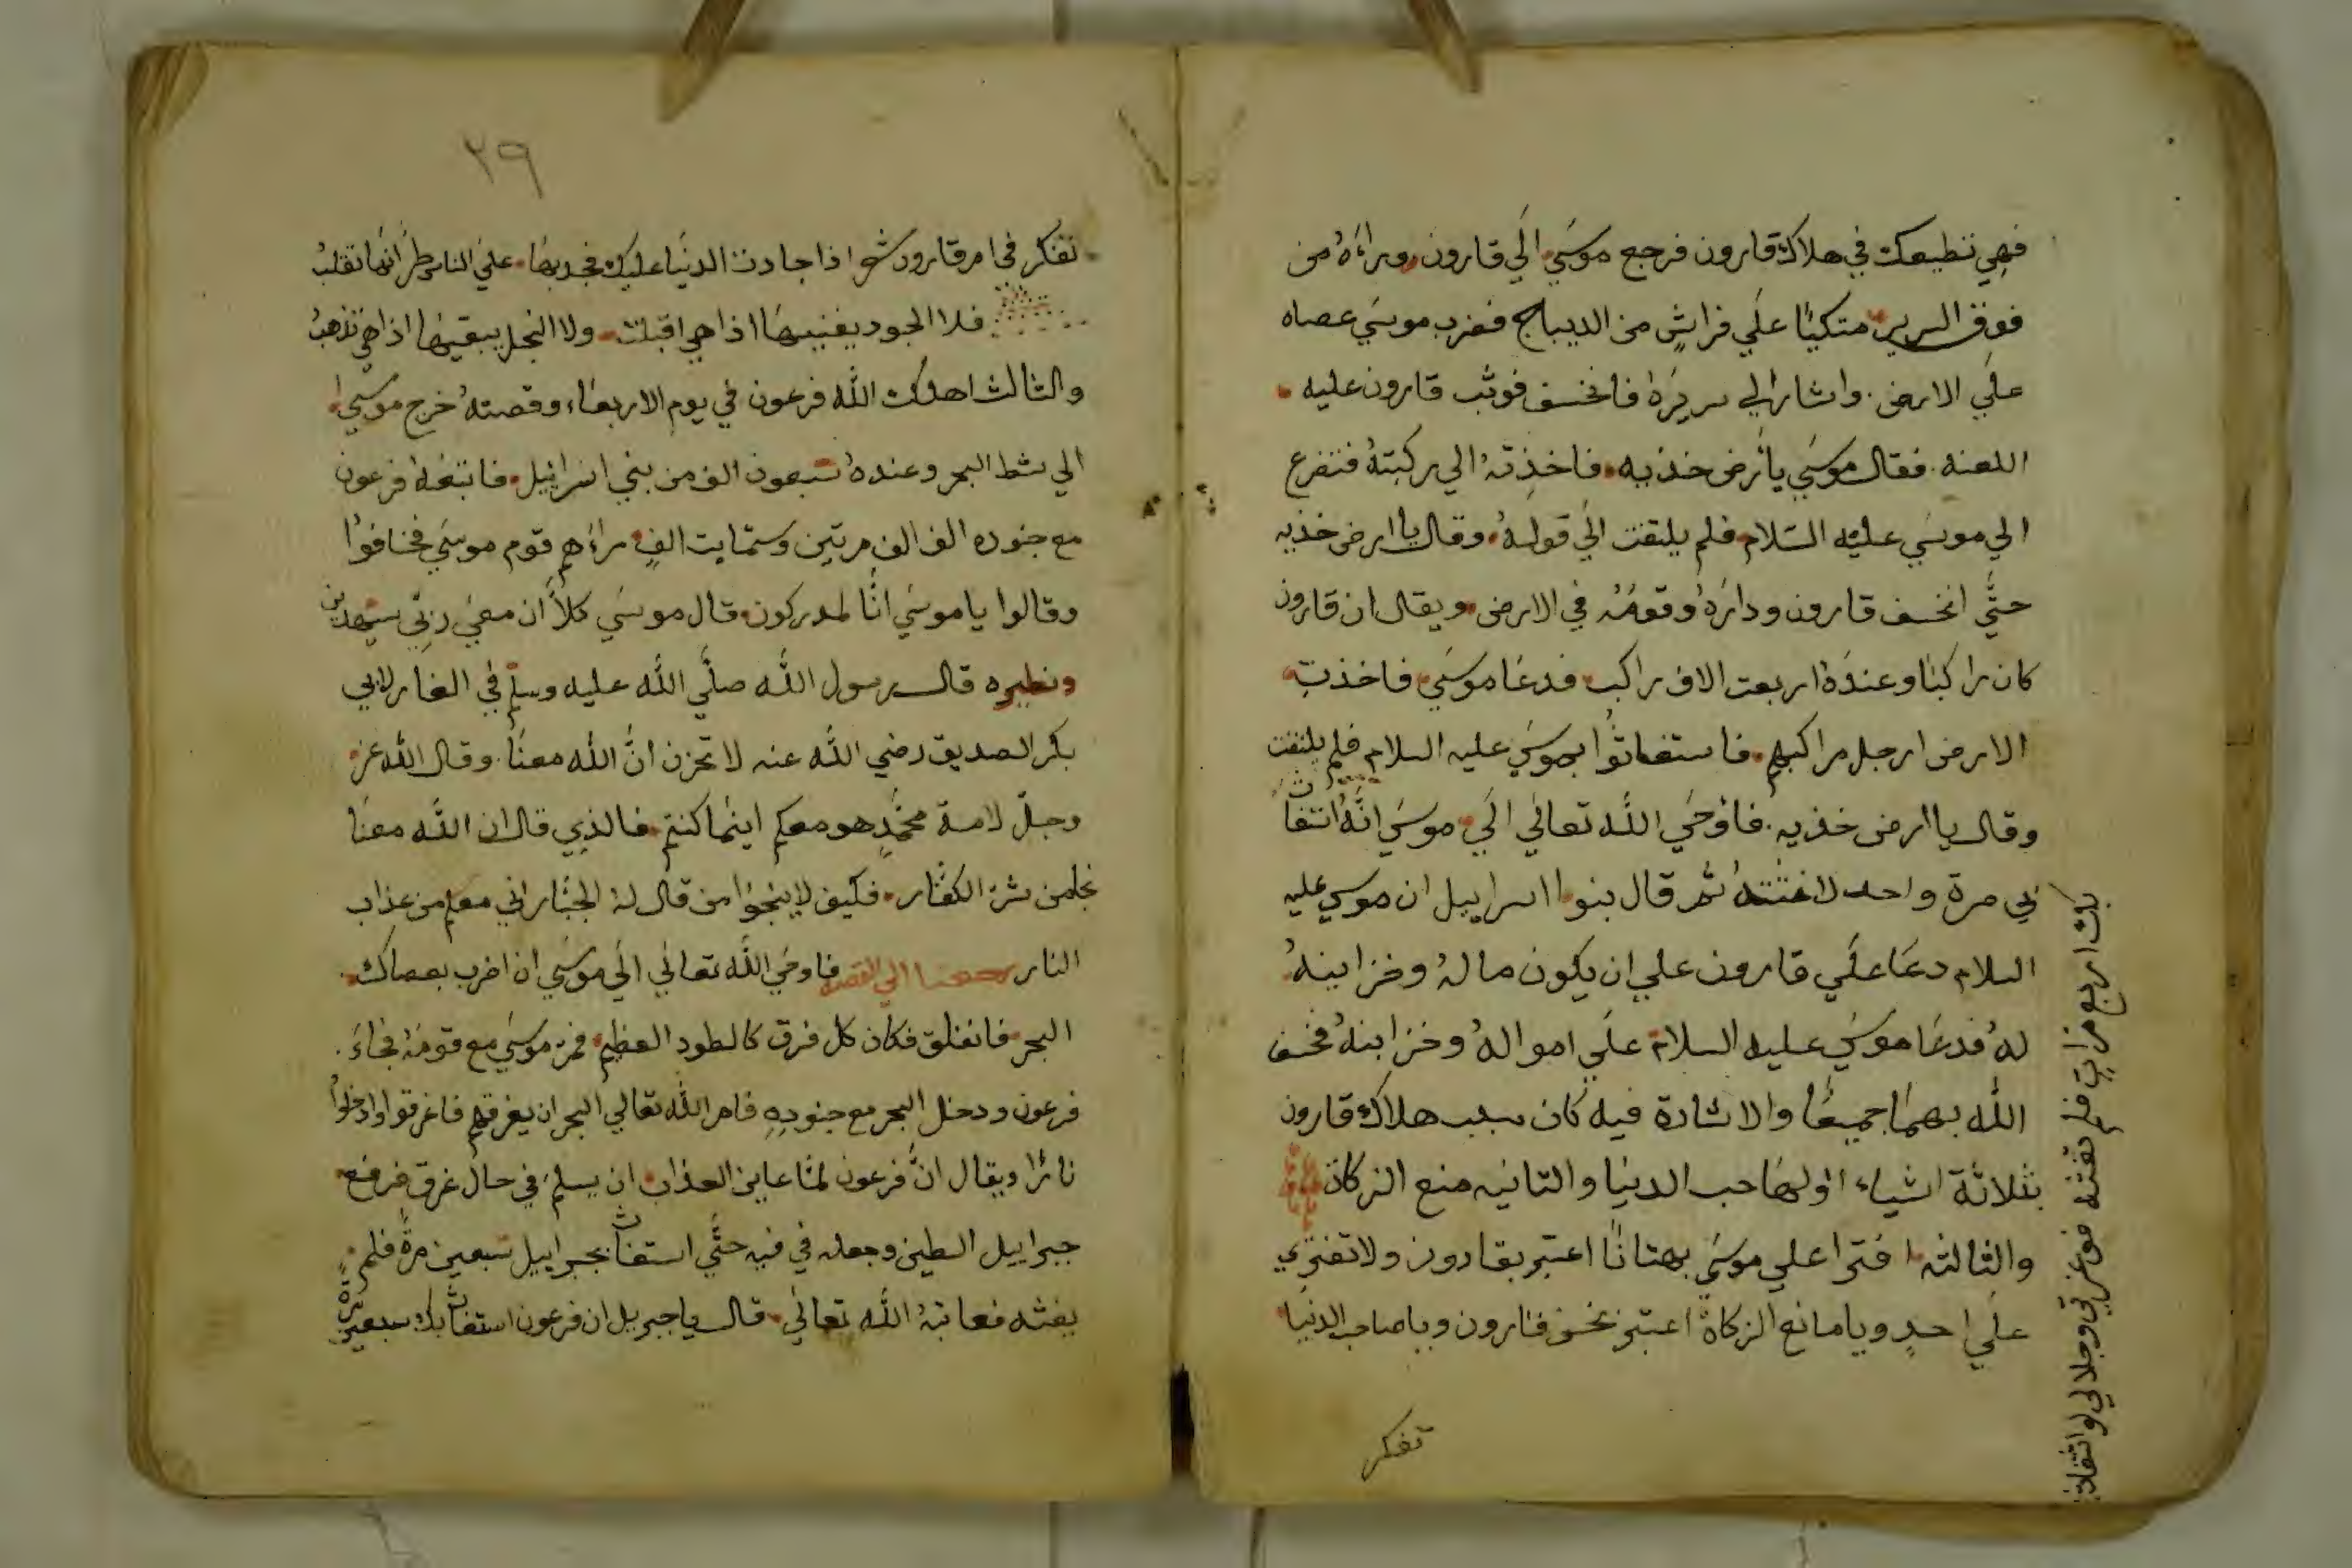 فهي تطيعك في هلاك قارون فرجع موسي الي قارون وراءه من
فوق السرير متكيًا علي فراشٍ من الديباج فضرب موسي عصاه
علي الارض واشار الي سريره فانخسف فوثب قارون عليه
اللعنه فقال موسي يا أرض خذيه فاخذته الي ركبته فتضرع
الي موسي عليه السلام فلم يلتفت الي قوله وقال يا ارض خذيه
حتي انخسف قارون وداره وقومه في الارض ويقال ان قارون
كان راكبا وعنده اربعت الاف راكب فدعا موسي فاخذت
الارض ارجل مراكبهم فاستغاثوا بموسي عليه السلام فلم يلتفت
وقال يا ارض خذيه فأوحي الله تعالي الي موسي انه استغاث
بي مرة واحد لاغثته ثم قال بنوا اسراييل ان موسي عليه
السلام دعا علي قارون علي ان يكون ماله وخزاينه
له فدعا موسي عليه السلام علي امواله وخزاينه فخسف
الله بهما جميعًا والاشادة فيه كان سبب هلاك قارون
بثلاثة اشياء اولها حب الدنيا والثانيه منع الزكاة
والثالثه افترا علي موسي بهتانًا اعتبر بقارون ولا تفتري
علي احدٍ ويا مانع الزكاة اعتبر بخسف قارون ويا صاحب الدنيا
تفكر
بك اربع مرات فلم تغثه فوعزتي وجلالي لو استغاث
٢٩
تفكر في امر قارون شعر اذا جادت الدنيا عليك فجد بها علي الناس طرًا انها تقلب
فلا الجود يفنيها اذا هي اقبلت ولا البخل يبقيها اذا هي تذهب
والثالث اهلك الله فرعون في يوم الاربعاء وقصته خرج موسي
الي شط البحر وعنده سبعون الف من بني اسرائيل فاتبعه فرعون
مع جنوده الف الف مرتين وستمايت الفٍ راءهم قوم موسي فخافوا
وقالوا يا موسي انا لمدركون قال موسي كلا ان معي ربي سيهدين
ونظيره قال رسول الله صلي الله عليه وسلم في الغار لابي
بكر الصديق رضي الله عنه لا تحزن ان الله معنا وقال الله عز
وجل لامة محمدٍ هو معكم اينما كنتم فالذي قال ان الله معنا
نجا من شر الكفار فكيف لا ينجوا من قال له الجبار اني معكم من عذاب
النار رجعنا الي القصه فاوحي الله تعالي الي موسي ان اضرب بعصاك
البحر فانفلق فكان كل فرق كالطود العظيم فمر موسي مع قومه فجاء
فرعون ودخل البحر مع جنوده فامر الله تعالي البحر ان يغرقهم فاغرقوا وادخلوا
نارًا ويقال ان فرعون لما عاين العذاب ان يسلم في حال غرق فرفع
جبراييل الطين وجعله في فيه حتي استغاث بجبراييل سبعين مرة فلم
يغثه فعاتبه الله تعالي قال يا جبريل ان فرعون استغاث بك سبعين مرة